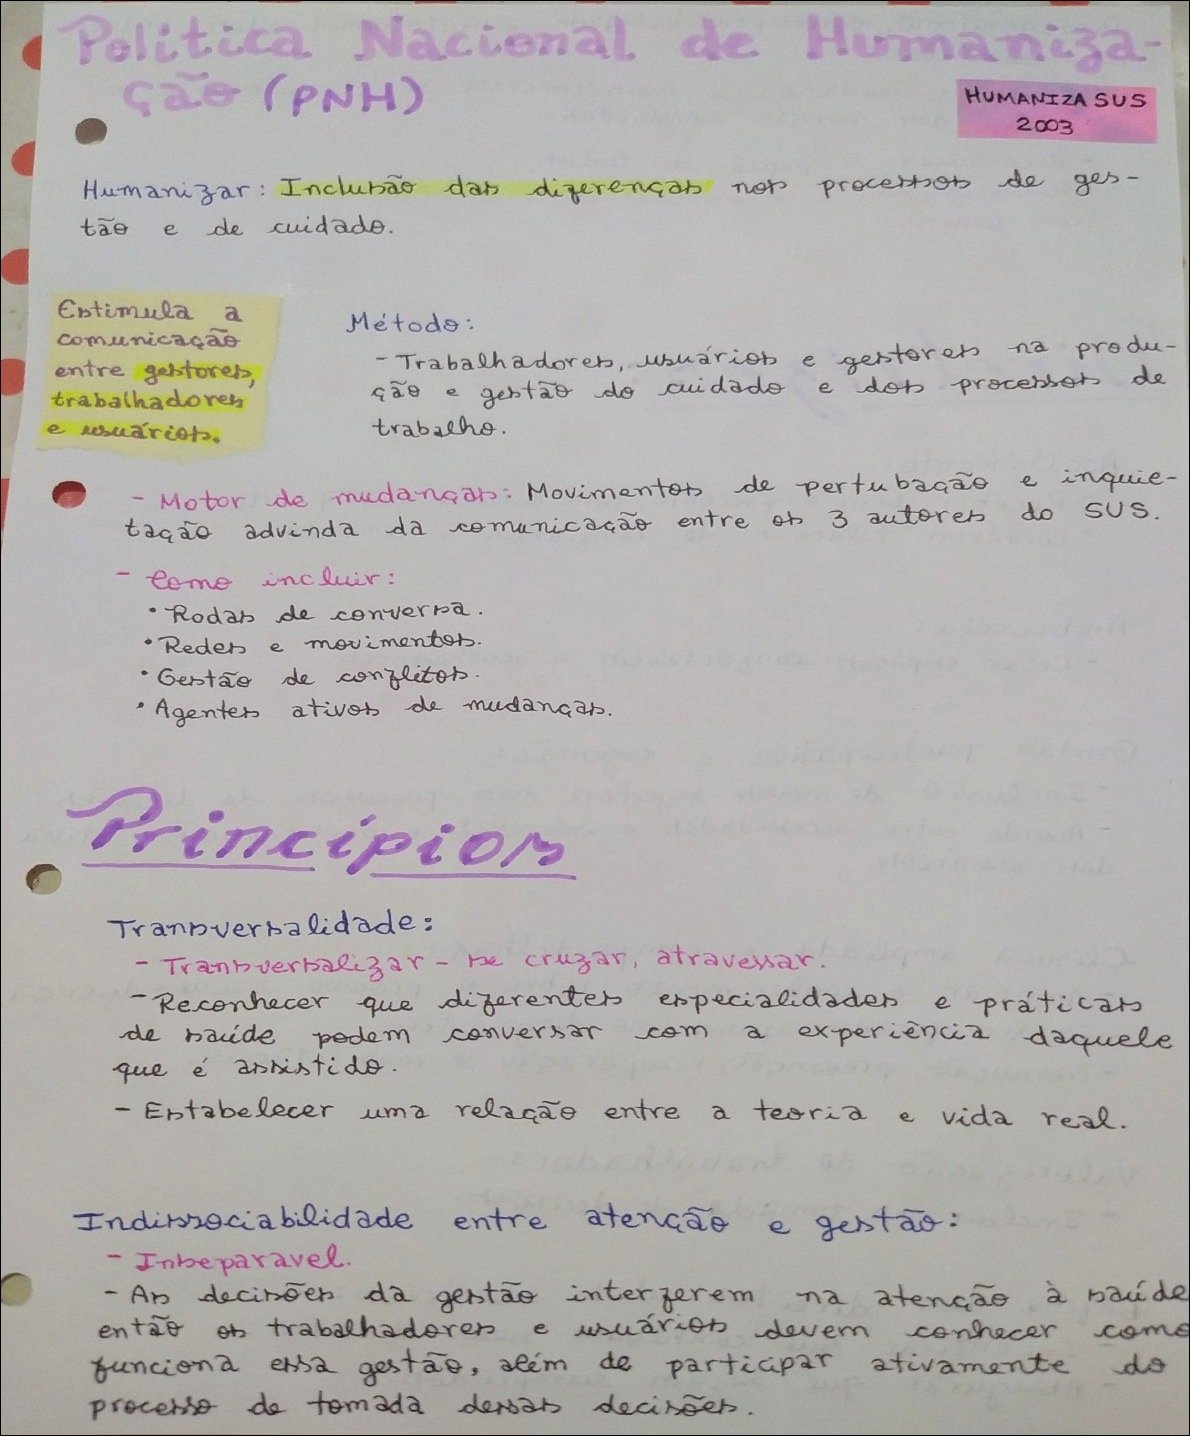 Política Nacional de Humaniza-
ção (PNH)
HUMANIZA SUS
2003
Humanizar: Inclusão das diferenças nos processos de ges-
tão e de cuidado.
Estimula a
comunicação
entre gestores,
trabalhadores
e usuários.
Método:
- Trabalhadores, usuários e gestores na produ-
ção e gestão do cuidado e dos processos de
trabalho.
- Motor de mudanças: Movimentos de pertubação e inquie-
tação advinda da comunicação entre os 3 autores do SUS.
- Como incluir:
• Rodas de conversa.
• Redes e movimentos.
• Gestão de conflitos.
• Agentes ativos de mudanças.
Princípios
Transversalidade:
- Transversalizar - se cruzar, atravessar.
- Reconhecer que diferentes especialidades e práticas
de saúde podem conversar com a experiência daquele
que é assistido.
- Estabelecer uma relação entre a teoria e vida real.
Indissociabilidade entre atenção e gestão:
- Inseparavel.
- As decisões da gestão interferem na atenção à saúde
então os trabalhadores e usuários devem conhecer como
funciona essa gestão, além de participar ativamente do
processo de tomada dessas decisões.